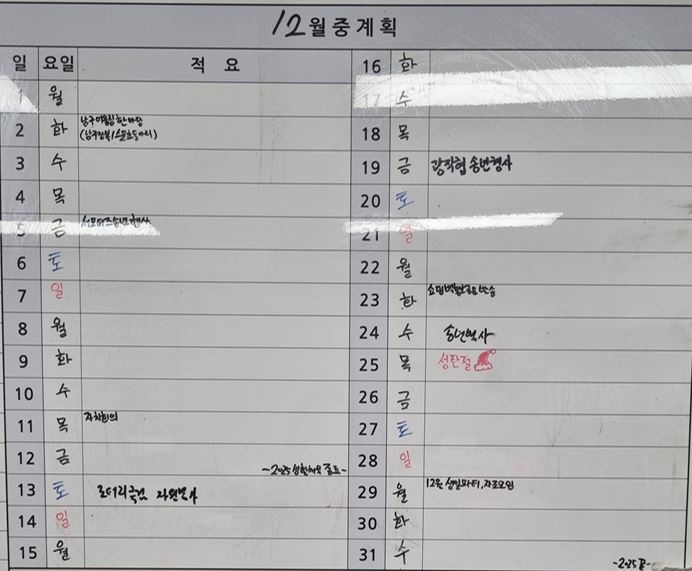 12월중계획
일 요일 적 요
1 월
2 화 남구어울림한마당
3 수
4 목
5 금 서포터즈송년행사
6 토
7 일
8 월
9 화
10 수
11 목 자치회의
12 금 -2025 생활체육 종료-
13 토 로터리클럽 자원봉사
14 일
15 월
16 화
17 수
18 목
19 금 광작협 송년행사
20 토
21 일
22 월
23 화
24 수 송년행사
25 목 성탄절
26 금
27 토
28 일
29 월 12월 생일파티, 자조모임
30 화
31 수 -2025 끝-